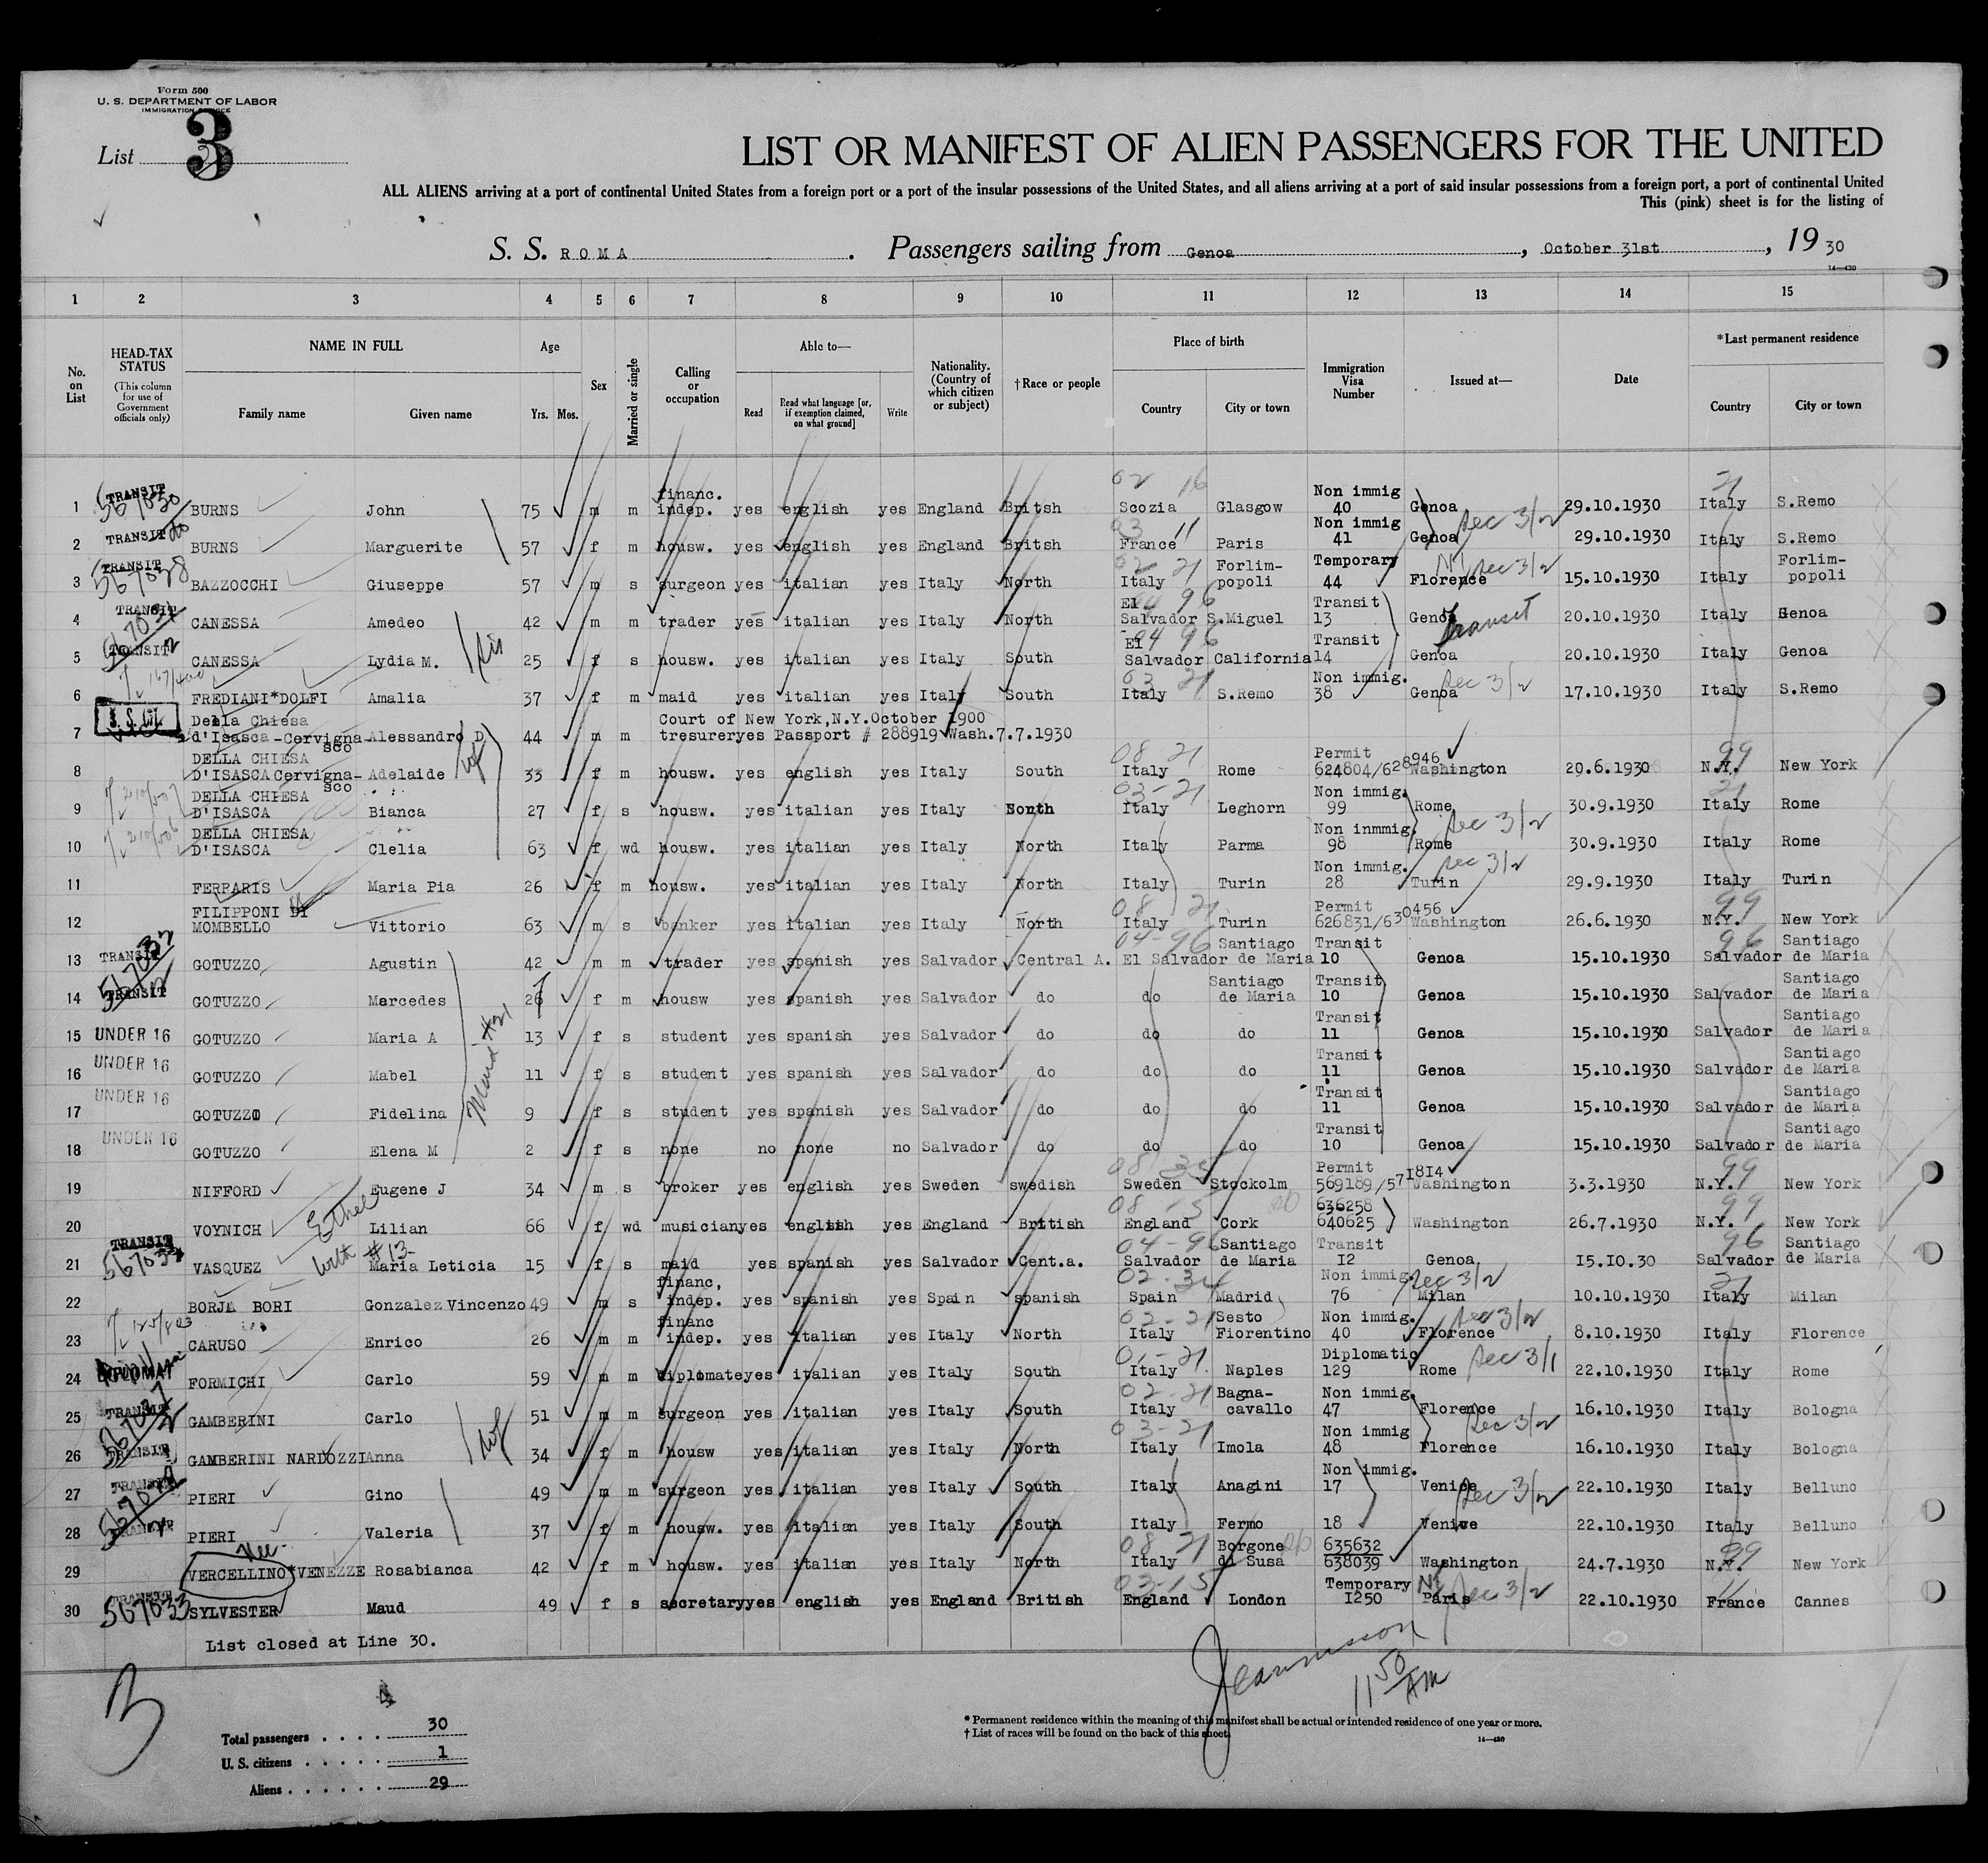 Form 500
U. S. DEPARTMENT OF LABOR
IMMIGRATION SERVICE
List 3
LIST OR MANIFEST OF ALIEN PASSENGERS FOR THE UNITED
ALL ALIENS arriving at a port of continental United States from a foreign port or a port of the insular possessions of the United States, and all aliens arriving at a port of said insular possessions from a foreign port, a port of continental United
This (pink) sheet is for the listing of
S. S. ROMA . Passengers sailing from Genoa , October 31st , 19 30
14—430
1 2 3 4 5 6 7 8 9 10 11 12 13 14 15
No. on List
HEAD-TAX STATUS (This column for use of Government officials only)
NAME IN FULL Family name Given name
Age Yrs. Mos.
Sex
Married or single
Calling or occupation
Able to— Read Read what language [or, if exemption claimed, on what ground] Write
Nationality. (Country of which citizen or subject)
†Race or people
Place of birth Country City or town
Immigration Visa Number
Issued at—
Date
*Last permanent residence Country City or town
02 16 21
TRANSIT 567030 financ. Non immig
1 BURNS John 75 m m indep. yes english yes England Britsh Scozia Glasgow 40 Genoa Sec 3/2 29.10.1930 Italy S.Remo
TRANSIT 03 11 Non immig
2 BURNS Marguerite 57 f m housw. yes english yes England Britsh France Paris 41 Genoa 29.10.1930 Italy S.Remo
TRANSIT 567028 02 21 Forlim- Temporary Sec 3/2 Forlim-
3 BAZZOCCHI Giuseppe 57 m s surgeon yes italian yes Italy North Italy popoli 44 Florence 15.10.1930 Italy popoli
TRANSIT El 04 96 Transit
4 CANESSA Amedeo 42 m m trader yes italian yes Italy North Salvador S.Miguel 13 Genoa transit 20.10.1930 Italy Genoa
TRANSIT sis El 04 96 Transit
5 CANESSA Lydia M. 25 f s housw. yes italian yes Italy South Salvador California 14 Genoa 20.10.1930 Italy Genoa
03 21 Non immig. Sec 3/2
6 FREDIANI*DOLFI Amalia 37 f m maid yes italian yes Italy South Italy S.Remo 38 Genoa 17.10.1930 Italy S.Remo
U. S. CIT. Della Chiesa Court of New York,N.Y.October 1900
7 d'Isasca-Cervigna- Alessandro D 44 m m tresurer yes Passport # 288919 Wash.7.7.1930
sco
DELLA CHIESA wf 08 21 Permit 99
8 D'ISASCA Cervigna- Adelaide 33 f m housw. yes english yes Italy South Italy Rome 624804/628946 Washington 29.6.1930 N.Y. New York
sco
DELLA CHIESA 03-21 Non immig. 21
9 D'ISASCA Bianca 27 f s housw. yes italian yes Italy North Italy Leghorn 99 Rome 30.9.1930 Italy Rome
DELLA CHIESA Non inmmig. Sec 3/2
10 D'ISASCA Clelia 63 f wd housw. yes italian yes Italy North Italy Parma 98 Rome 30.9.1930 Italy Rome
Non immig. Sec 3/2
11 FERPARIS Maria Pia 26 f m housw. yes italian yes Italy North Italy Turin 28 Turin 29.9.1930 Italy Turin
FILIPPONI DI 08 21 Permit 99
12 MOMBELLO Vittorio 63 m s banker yes italian yes Italy North Italy Turin 626831/630456 Washington 26.6.1930 N.Y. New York
TRANSIT 04-96 Santiago Transit 96 Santiago
13 GOTUZZO Agustin 42 m m trader yes spanish yes Salvador Central A. El Salvador de Maria 10 Genoa 15.10.1930 Salvador de Maria
TRANSIT Santiago Transit Santiago
14 GOTUZZO Mercedes 26 f m housw yes spanish yes Salvador do do de Maria 10 Genoa 15.10.1930 Salvador de Maria
Transit Santiago
15 UNDER 16 GOTUZZO Maria A 13 f s student yes spanish yes Salvador do do do 11 Genoa 15.10.1930 Salvador de Maria
Maid #21
UNDER 16 Transit Santiago
16 GOTUZZO Mabel 11 f s student yes spanish yes Salvador do do do 11 Genoa 15.10.1930 Salvador de Maria
UNDER 16 Transit Santiago
17 GOTUZZO Fidelina 9 f s student yes spanish yes Salvador do do do 11 Genoa 15.10.1930 Salvador de Maria
UNDER 16 Transit Santiago
18 GOTUZZO Elena M 2 f s none no none no Salvador do do do 10 Genoa 15.10.1930 Salvador de Maria
Permit 99
19 NIFFORD Eugene J 34 m s broker yes english yes Sweden swedish Sweden Stockolm 569189/571814 Washington 3.3.1930 N.Y. New York
Ethel 08-15 636258 99
20 VOYNICH Lilian 66 f wd musician yes english yes England British England Cork 640625 Washington 26.7.1930 N.Y. New York
TRANSIT with #13 04-96 Santiago Transit 96 Santiago
21 VASQUEZ Maria Leticia 15 f s maid yes spanish yes Salvador Cent.a. Salvador de Maria 12 Genoa 15.10.30 Salvador de Maria
financ, Non immig. Sec 3/2 21
22 BORJA BORI Gonzalez Vincenzo 49 m s indep. yes spanish yes Spain spanish Spain Madrid 76 Milan 10.10.1930 Italy Milan
financ 02-21 Sesto Non immig. Sec 3/2
23 CARUSO Enrico 26 m m indep. yes italian yes Italy North Italy Fiorentino 40 Florence 8.10.1930 Italy Florence
DIPLOMAT 01-21 Diplomatic
24 FORMICHI Carlo 59 m m diplomate yes italian yes Italy South Italy Naples 129 Rome Sec 3/1 22.10.1930 Italy Rome
TRANSIT 02-21 Bagna- Non immig.
25 GAMBERINI Carlo 51 m m surgeon yes italian yes Italy South Italy cavallo 47 Florence Sec 3/2 16.10.1930 Italy Bologna
TRANSIT wf 03-21 Non immig
26 GAMBERINI NARDOZZI Anna 34 f m housw yes italian yes Italy North Italy Imola 48 Florence 16.10.1930 Italy Bologna
TRANSIT Non immig.
27 PIERI Gino 49 m m surgeon yes italian yes Italy South Italy Anagini 17 Venice Sec 3/2 22.10.1930 Italy Belluno
TRANSIT
28 PIERI Valeria 37 f m housw. yes italian yes Italy South Italy Fermo 18 Venice 22.10.1930 Italy Belluno
Nee 08 21 Borgone 635632 99
29 VERCELLINO*VENEZZE Rosabianca 42 f m housw. yes italian yes Italy North Italy di Susa 638039 Washington 24.7.1930 N.Y. New York
TRANSIT 567033 03-15 Temporary Sec 3/2 11
30 SYLVESTER Maud 49 f s secretary yes english yes England British England London 1250 Paris 22.10.1930 France Cannes
List closed at Line 30.
3
11 50 AM
Total passengers . . . . 30
U. S. citizens . . . . . 1
Aliens . . . . . . 29
* Permanent residence within the meaning of this manifest shall be actual or intended residence of one year or more.
† List of races will be found on the back of this sheet.
14—430